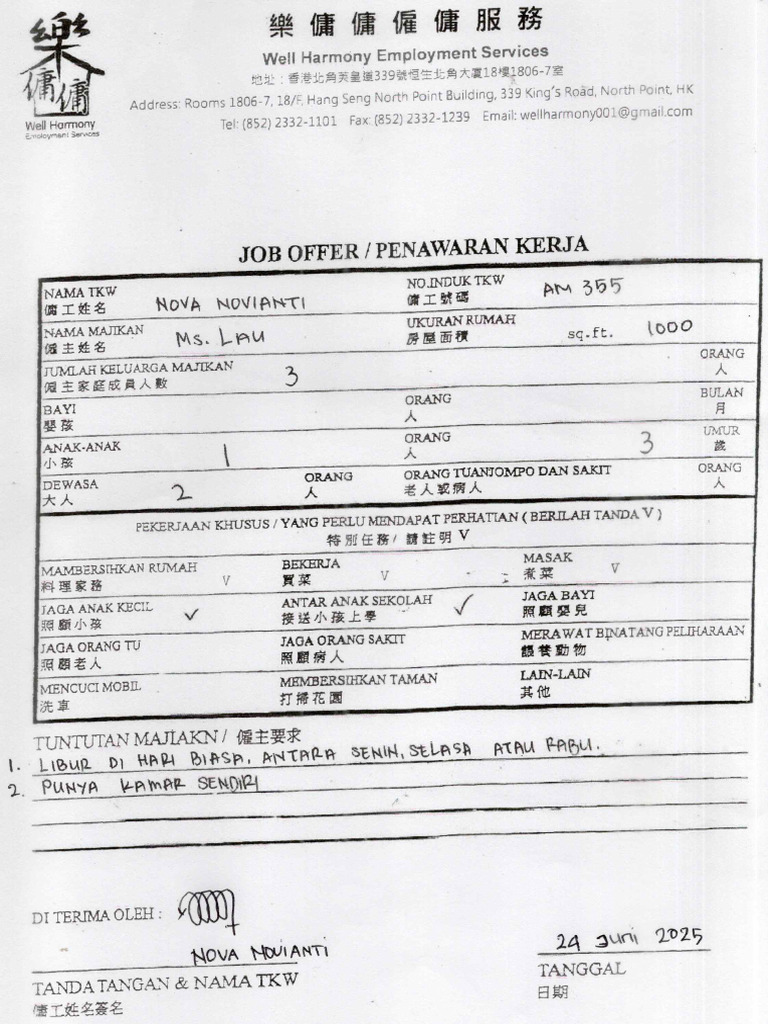 樂傭傭僱傭服務
樂
傭傭
Well Harmony
Employment Services
Well Harmony Employment Services
地址：香港北角英皇道339號恒生北角大廈18樓1806-7室
Address: Rooms 1806-7, 18/F, Hang Seng North Point Building, 339 King's Road, North Point, HK
Tel: (852) 2332-1101 Fax: (852) 2332-1239 Email: wellharmony001@gmail.com
JOB OFFER / PENAWARAN KERJA
NAMA TKW NO.INDUK TKW
傭工姓名 NOVA NOVIANTI 傭工號碼 AM 355
NAMA MAJIKAN UKURAN RUMAH
僱主姓名 Ms. LAU 房屋面積 sq.ft. 1000
JUMLAH KELUARGA MAJIKAN ORANG
僱主家庭成員人數 3 人
BAYI ORANG BULAN
嬰孩 人 月
ANAK-ANAK ORANG UMUR
小孩 1 人 3 歲
DEWASA ORANG ORANG TUANJOMPO DAN SAKIT ORANG
大人 2 人 老人或病人 人
PEKERJAAN KHUSUS / YANG PERLU MENDAPAT PERHATIAN ( BERILAH TANDA V )
特別任務/ 請註明 V
MAMBERSIHKAN RUMAH BEKERJA MASAK
料理家務 V 買菜 V 煮菜 V
JAGA ANAK KECIL ANTAR ANAK SEKOLAH JAGA BAYI
照顧小孩 ✓ 接送小孩上學 ✓ 照顧嬰兒
JAGA ORANG TU JAGA ORANG SAKIT MERAWAT BINATANG PELIHARAAN
照顧老人 照顧病人 餵養動物
MENCUCI MOBIL MEMBERSIHKAN TAMAN LAIN-LAIN
洗車 打掃花園 其他
TUNTUTAN MAJIAKN / 僱主要求
1. LIBUR DI HARI BIASA, ANTARA SENIN, SELASA ATAU RABU.
2. PUNYA KAMAR SENDIRI
DI TERIMA OLEH :
NOVA NOVIANTI 24 Juni 2025
TANDA TANGAN & NAMA TKW TANGGAL
傭工姓名簽名 日期